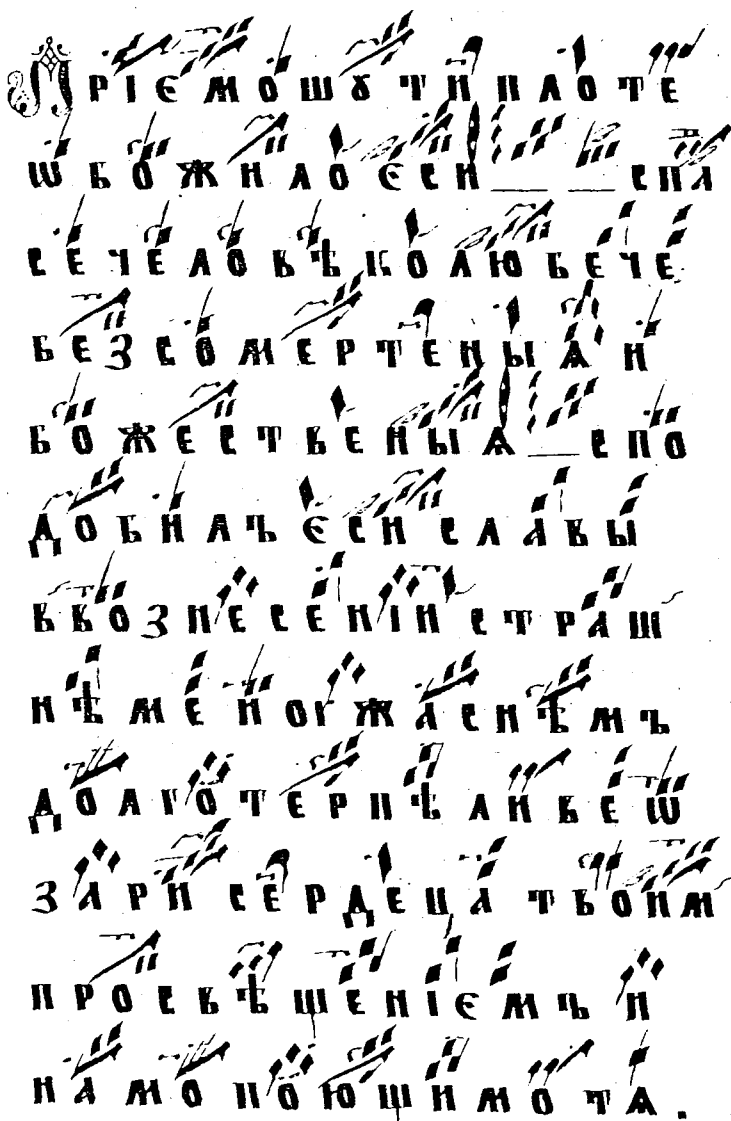 Прїємошꙋти плоте
ѡбожилоєси спа
сечеловѣколюбече
безсомертеныѧ и
божественыѧ спо
добилъєси славы
ввознесенїи страш
нѣменогжаснѣмъ
долготерпѣливеѡ
зари сердеца твоим
просвѣщенїємъ и
намопоющимотѧ.